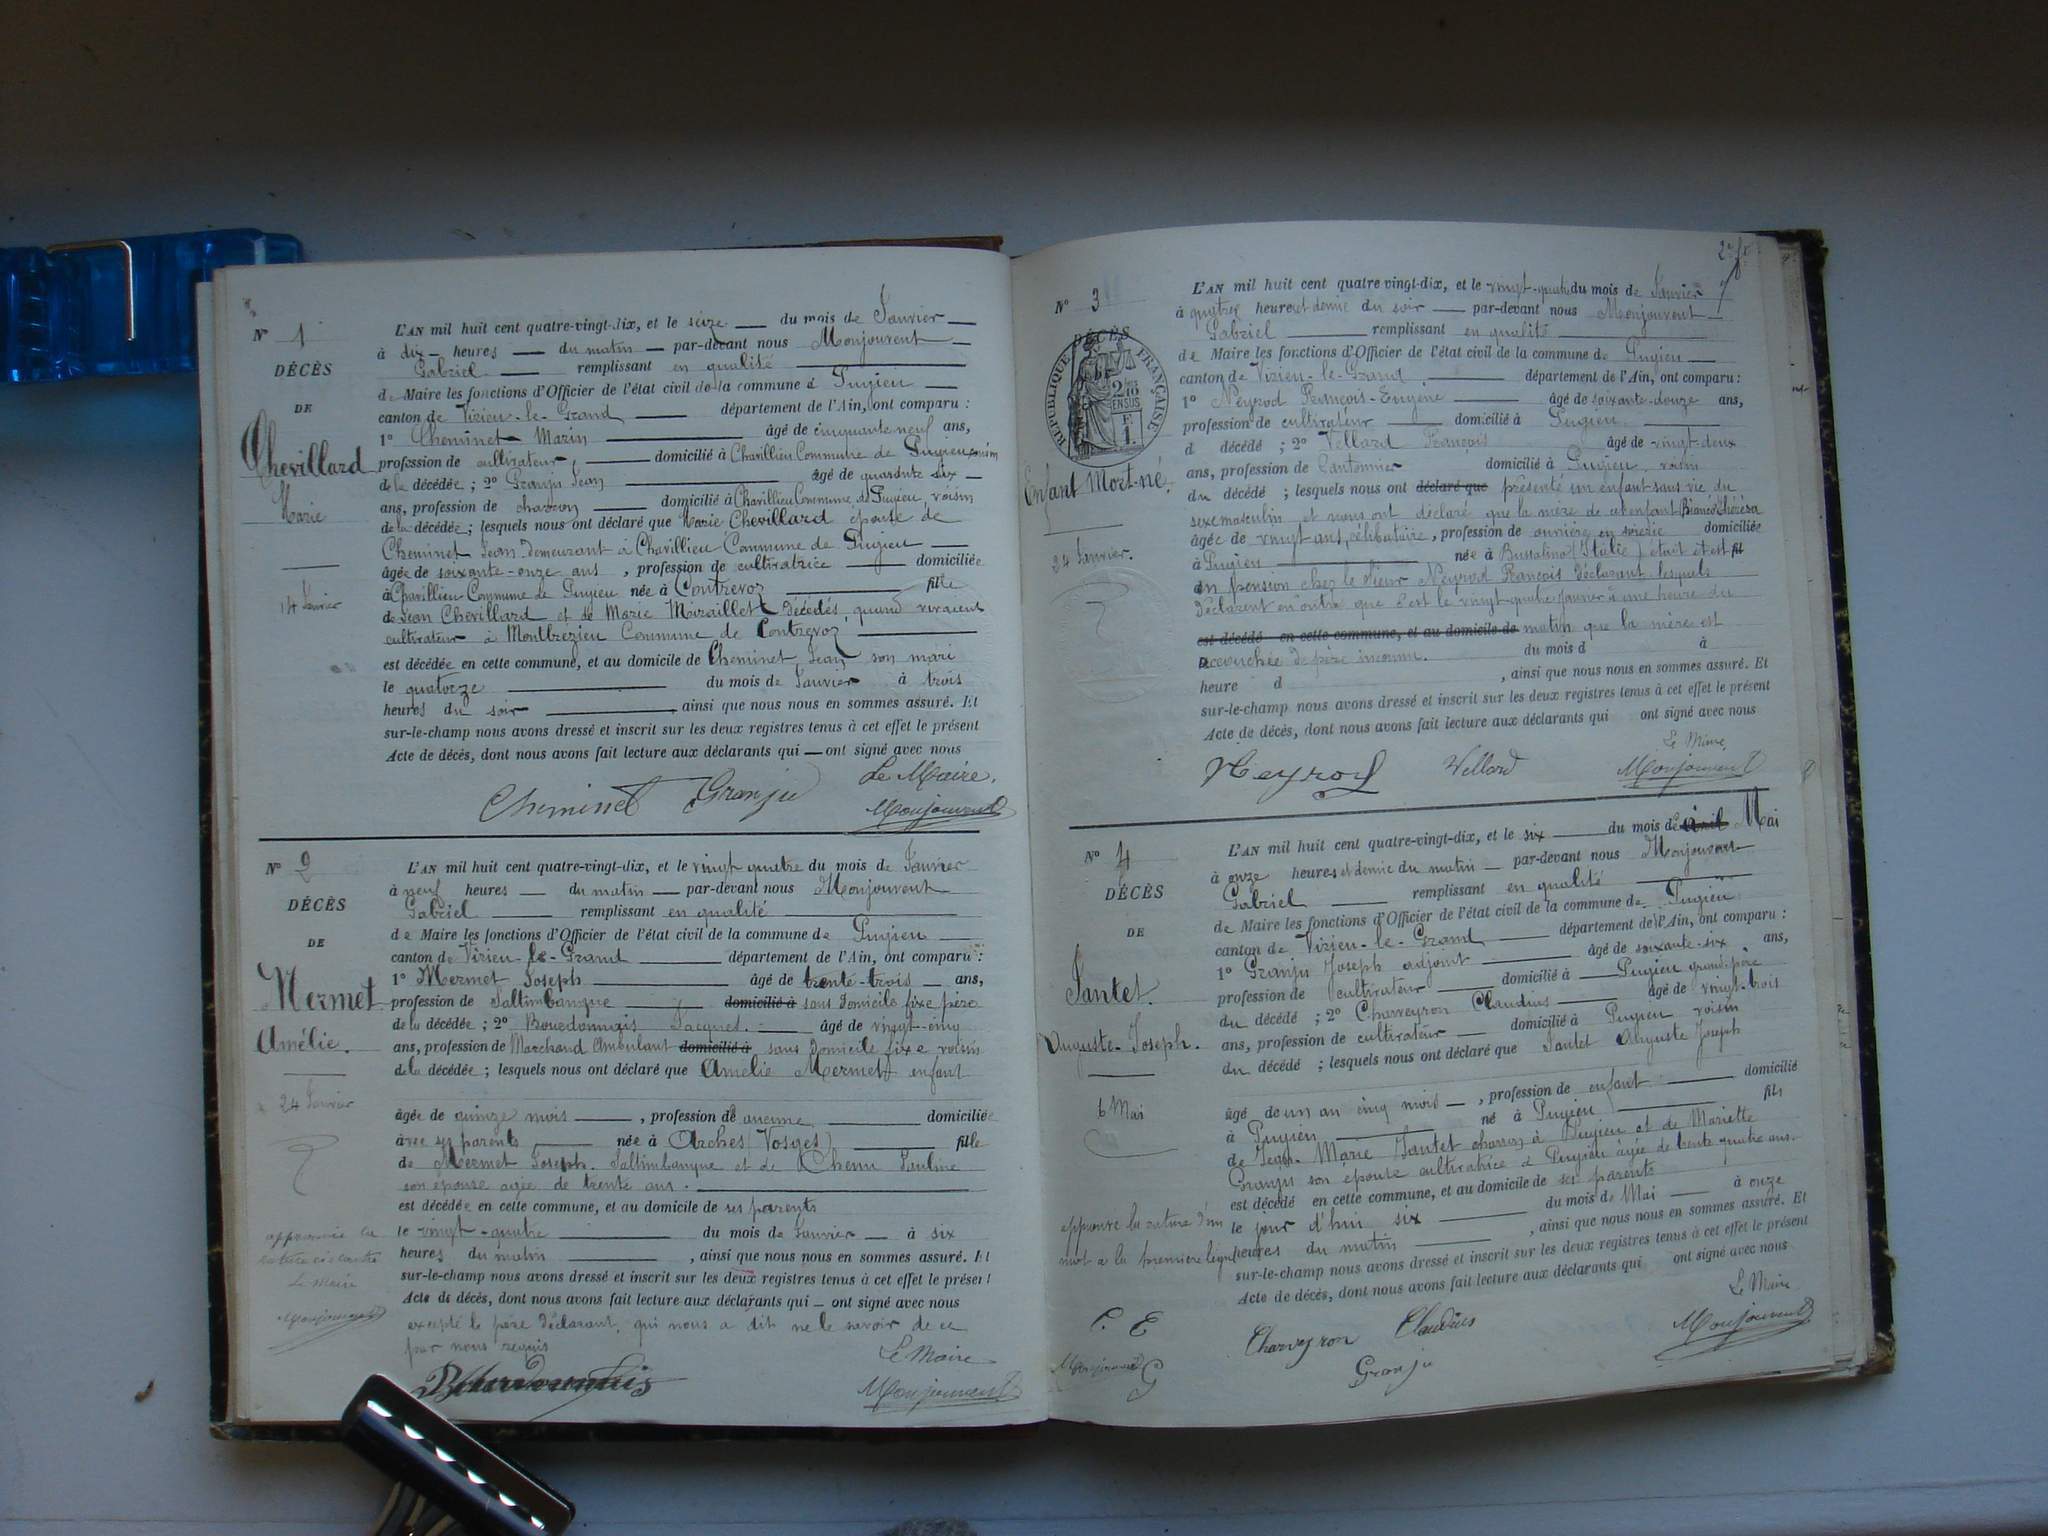 N° 1
DÉCÈS
DE
Chevillard
Marie
14 Janvier
L'AN mil huit cent quatre-vingt-dix, et le seize du mois de Janvier
à dix heures du matin par-devant nous Monjouvent
Gabriel remplissant en qualité
de Maire les fonctions d'Officier de l'état civil de la commune d Pugieu
canton de Virieu-le-Grand département de l'Ain, ont comparu :
1° Cheminet Marin âgé de cinquante neuf ans,
profession de cultivateur, domicilié à Chavillieu Commune de Pugieu
de la décédée ; 2° Granju Jean âgé de quarante six
ans, profession de charron domicilié à Chavillieu Commune de Pugieu, voisin
de la décédée ; lesquels nous ont déclaré que Marie Chevillard épouse de
Cheminet Jean demeurant à Chavillieu Commune de Pugieu
âgée de soixante-onze ans, profession de cultivatrice domiciliée
à Chavillieu Commune de Pugieu née à Contrevoz fille
de Jean Chevillard et de Marie Miraillet décédés, quand vivaient
cultivateur à Montbrezieu Commune de Contrevoz
est décédée en cette commune, et au domicile de Cheminet Jean son mari
le quatorze du mois de Janvier à trois
heures du soir ainsi que nous nous en sommes assuré. Et
sur-le-champ nous avons dressé et inscrit sur les deux registres tenus à cet effet le présent
Acte de décès, dont nous avons fait lecture aux déclarants qui ont signé avec nous
Cheminet Granju Le Maire,
Monjouvent
N° 2
DÉCÈS
DE
Mermet
Amélie.
24 Janvier
approuvée la
rature ci-contre
Le Maire
Monjouvent
L'AN mil huit cent quatre-vingt-dix, et le vingt quatre du mois de Janvier
à neuf heures du matin par-devant nous Monjouvent
Gabriel remplissant en qualité
de Maire les fonctions d'Officier de l'état civil de la commune de Pugieu
canton de Virieu-le-Grand département de l'Ain, ont comparu :
1° Mermet Joseph âgé de trente-trois ans,
profession de Saltimbanque domicilié à sans domicile fixe père
de la décédée ; 2° Bourdonnais Jacques âgé de vingt-cinq
ans, profession de Marchand Ambulant domicilié à sans domicile fixe voisin
de la décédée ; lesquels nous ont déclaré que Amélie Mermet enfant
âgée de quinze mois, profession de aucune domiciliée
avec ses parents née à Arches (Vosges) fille
de Mermet Joseph. Saltimbanque et de Chenu Pauline
son épouse agée de trente ans.
est décédée en cette commune, et au domicile de ses parents
le vingt-quatre du mois de Janvier à six
heures du matin, ainsi que nous nous en sommes assuré. Et
sur-le-champ nous avons dressé et inscrit sur les deux registres tenus à cet effet le présent
Acte de décès, dont nous avons fait lecture aux déclarants qui ont signé avec nous
excepté le père déclarant, qui nous a dit ne le savoir de ce
par nous requis
Le Maire
Bourdonnais Monjouvent
N° 3
DÉCÈS
RÉPUBLIQUE FRANÇAISE
Enfant Mort-né.
24 Janvier.
L'AN mil huit cent quatre-vingt-dix, et le vingt-quatre du mois de Janvier
à quatre heure et demie du soir par-devant nous Monjouvent
Gabriel remplissant en qualité
de Maire les fonctions d'Officier de l'état civil de la commune de Pugieu
canton de Virieu-le-Grand département de l'Ain, ont comparu :
1° Neyrod François-Eugène âgé de soixante-douze ans,
profession de cultivateur domicilié à Pugieu
d décédé ; 2° Vellard François âgé de vingt-deux
ans, profession de Cantonnier domicilié à Pugieu, voisin
du décédé ; lesquels nous ont déclaré que présenté un enfant sans vie du
sexe masculin et nous ont déclaré que la mère de cet enfant Bianco Thérésa
âgée de vingt ans, célibataire, profession de ouvrière en soierie domiciliée
à Pugieu née à Bussolino (Italie) était et est fil
en pension chez le sieur Neyrod François déclarant lesquels
déclarent en outre que c'est le vingt-quatre Janvier à une heure du
est décédé en cette commune, et au domicile de matin que la mère est
accouchée de père inconnu. du mois d à
heure d, ainsi que nous nous en sommes assuré. Et
sur-le-champ nous avons dressé et inscrit sur les deux registres tenus à cet effet le présent
Acte de décès, dont nous avons fait lecture aux déclarants qui ont signé avec nous
Le Maire
Neyrod Vellard Monjouvent
N° 4
DÉCÈS
DE
Jantet.
Auguste-Joseph.
6 Mai
approuve la rature d'un
mot a la première ligne
C. E
Monjouvent G
L'AN mil huit cent quatre-vingt-dix, et le six du mois de avril Mai
à onze heures et demie du matin par-devant nous Monjouvent
Gabriel remplissant en qualité
de Maire les fonctions d'Officier de l'état civil de la commune de Pugieu
canton de Virieu-le-Grand département de l'Ain, ont comparu :
1° Granju Joseph adjoint âgé de soixante-six ans,
profession de cultivateur domicilié à Pugieu grand-père
du décédé ; 2° Charveyron Claudius âgé de vingt-trois
ans, profession de cultivateur domicilié à Pugieu voisin
du décédé ; lesquels nous ont déclaré que Jantet Auguste Joseph
âgé de un an cinq mois, profession de enfant domicilié
à Pugieu né à Pugieu fils
de Jean-Marie Jantet charron à Pugieu et de Mariette
Granju son épouse cultivatrice à Pugieu âgée de trente quatre ans.
est décédé en cette commune, et au domicile de ses parents
le jour d'hui six du mois de Mai à onze
heures du matin, ainsi que nous nous en sommes assuré. Et
sur-le-champ nous avons dressé et inscrit sur les deux registres tenus à cet effet le présent
Acte de décès, dont nous avons fait lecture aux déclarants qui ont signé avec nous
Le Maire
Charveyron Claudius Monjouvent
Granju